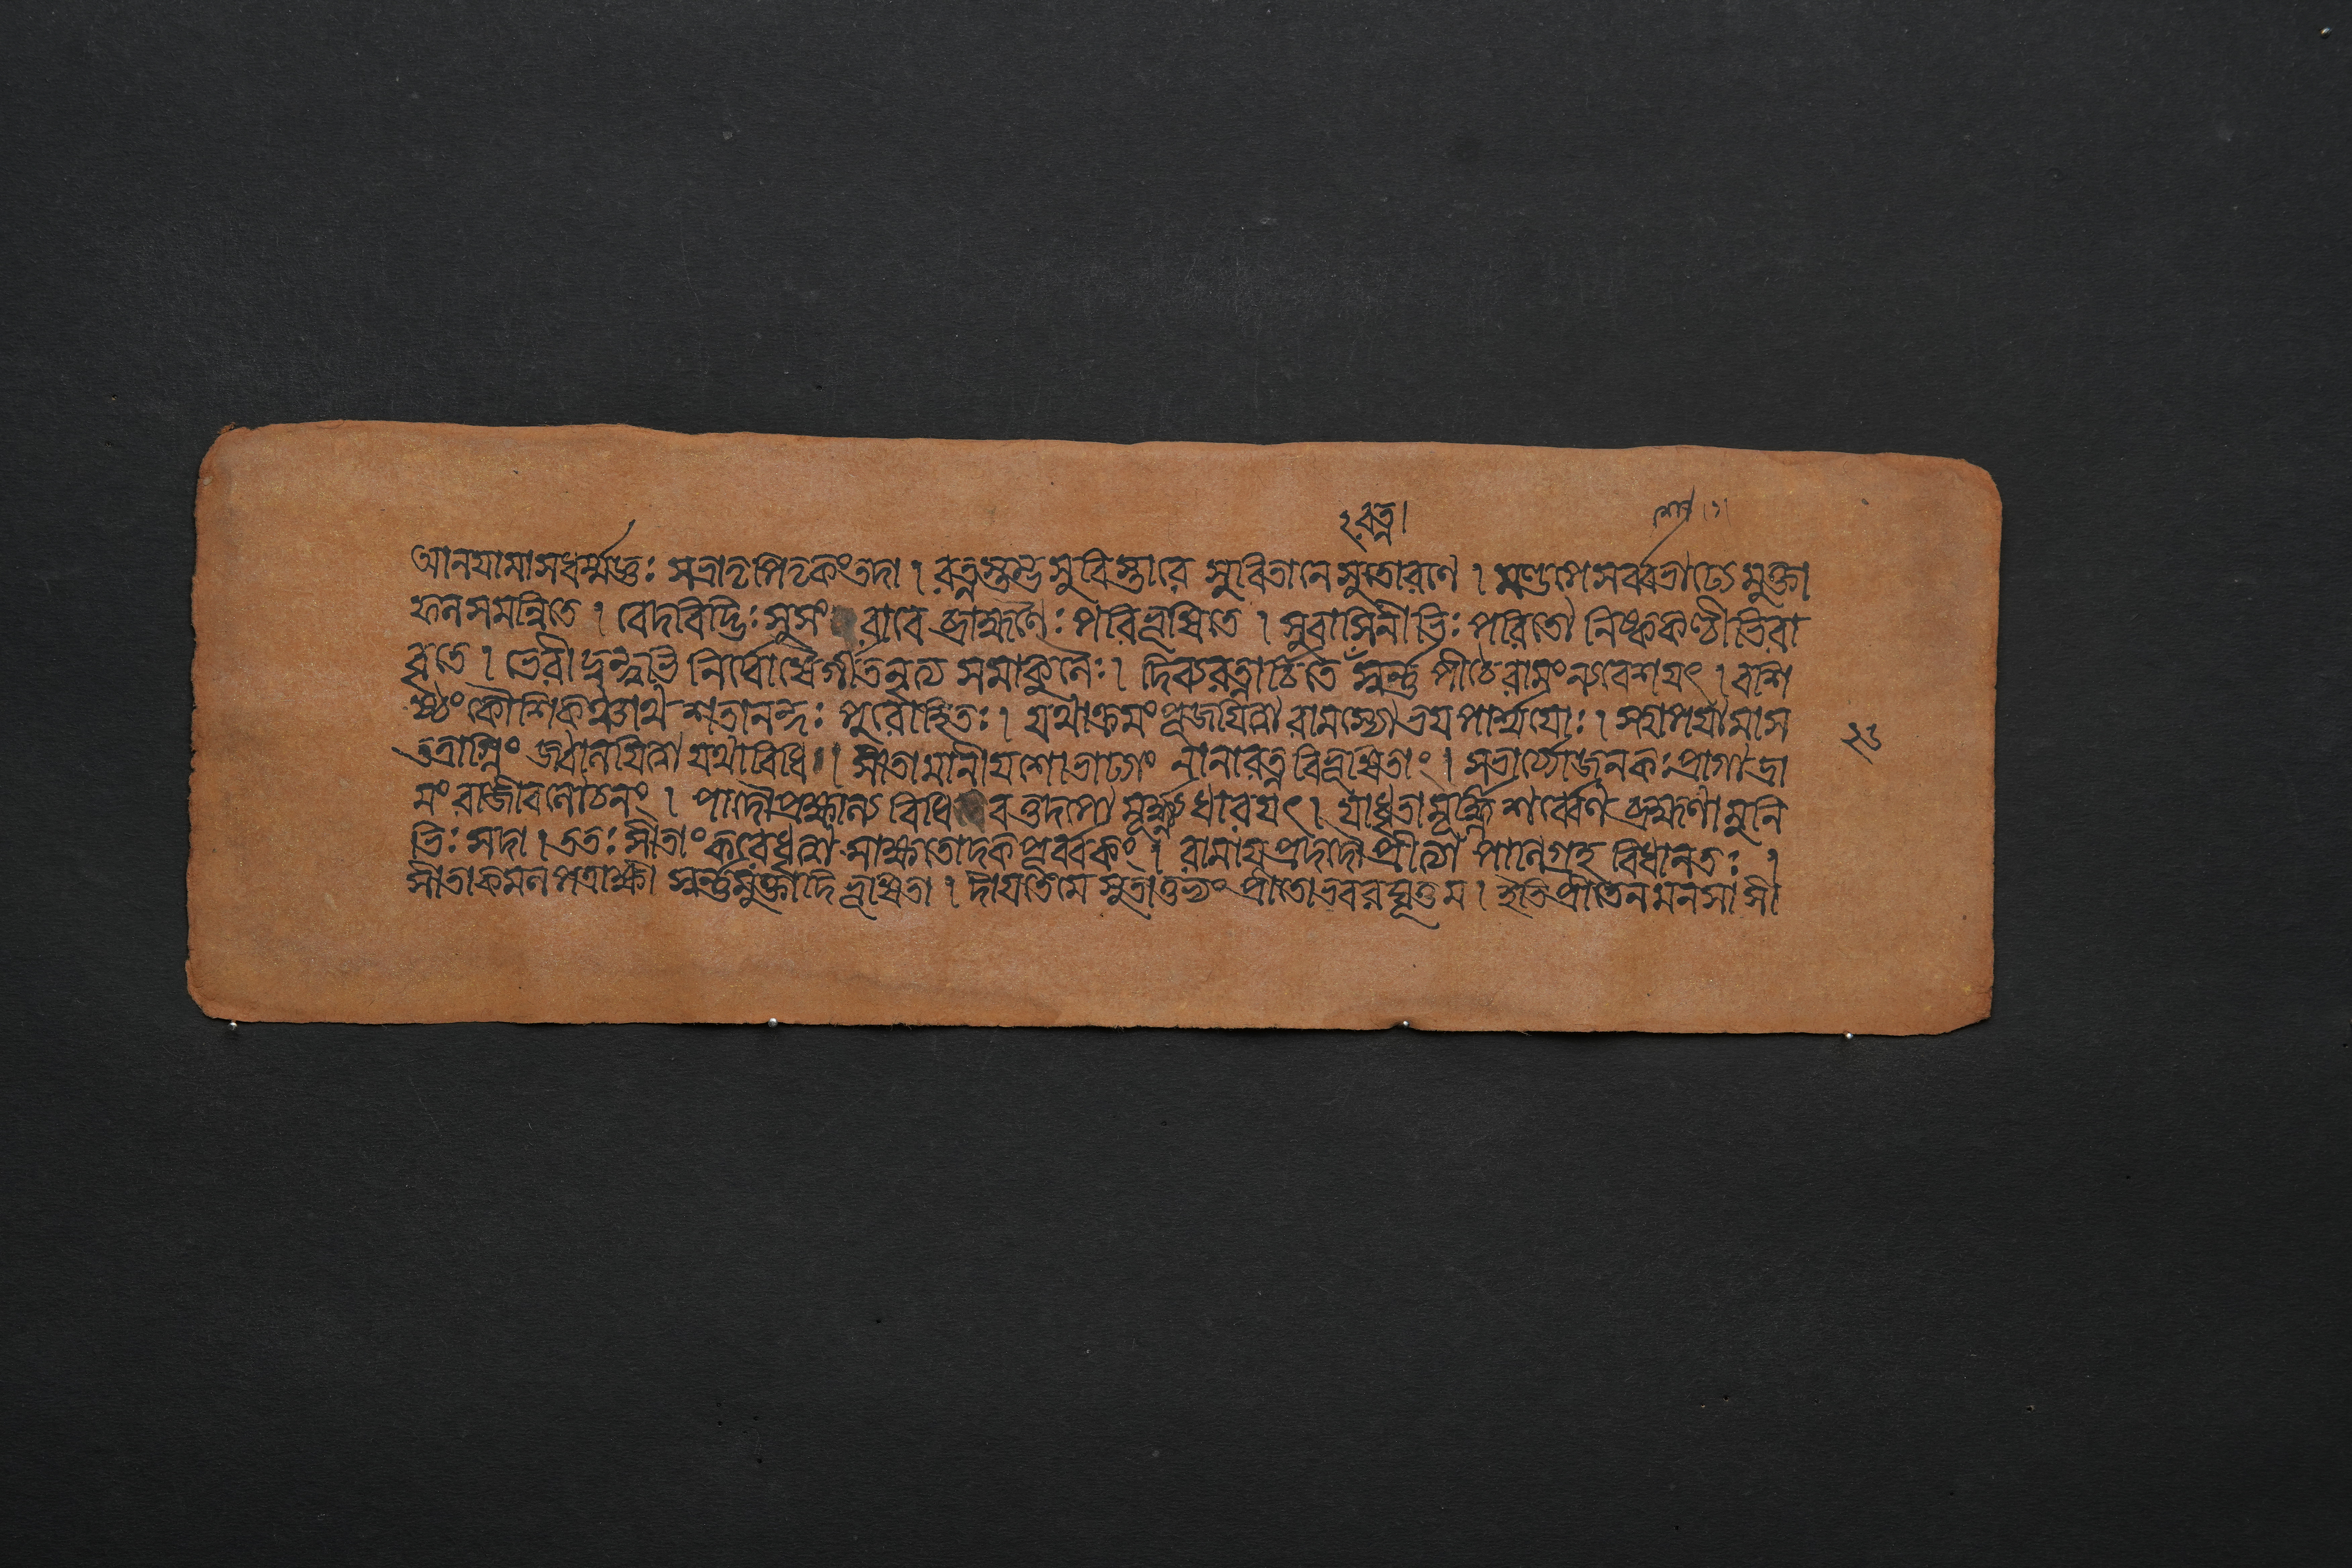 ২রত্ন।
আনযামাসধর্ম্মজ্ঞঃ সমাতৃপিতৃকংতদা। রত্নস্তম্ভসুবিস্তারে সুবিতানেসুতোরণে। মণ্ডপেসর্ব্বশোভাঢ্যেমুক্তা
ফলসমন্বিতে। বেদবিদ্ভিঃসুসং বাধে ব্রাহ্মণৈঃপরিভূষিতে। সুবাসিনীভিঃপরিতো নিষ্ককণ্ঠীভিরা
বৃতে। ভেরীদুন্দুভি নির্ঘোষৈর্গীতনৃত্য সমাকুলৈঃ। দিব্যরত্নাচিতে স্বর্ণ পীঠে রামংন্যবেশযৎ। বশি
ষ্ঠং কৌশিকঞ্চাথ শতানন্দঃ পুরোহিতঃ। যথাক্রমংপূজযিত্বা রামস্যোভযপার্শ্বযোঃ। স্থাপযামাস
তত্রাগ্নিং জ্বালযিত্বা যথাবিধি। সীতামানীযশোভাঢ্যাং নানারত্ন বিভূষিতাং। সভার্য্যোজনকঃপ্রাগাদ্রা
মং রাজীবলোচনং। পাদৌপ্রক্ষাল্য বিধি বত্তদপো মূর্দ্ধ্ন্যধারযৎ। যাধৃতামূর্দ্ধ্নি শর্ব্বেণ ব্রহ্মণামুনি
ভিঃ সদা। ততঃসীতাং করেধৃত্বা সাক্ষতোদকপূর্ব্বকং। রামাযপ্রদদৌপ্রীত্যা পানিগ্রহ বিধানতঃ।
সীতাকমলপত্রাক্ষী স্বর্ণমুক্তাদি ভূষিতা। দীযতেমে সুতাতুভ্যং প্রীতোভবরঘূত্তম। ইতিপ্রীতেনমনসা সী